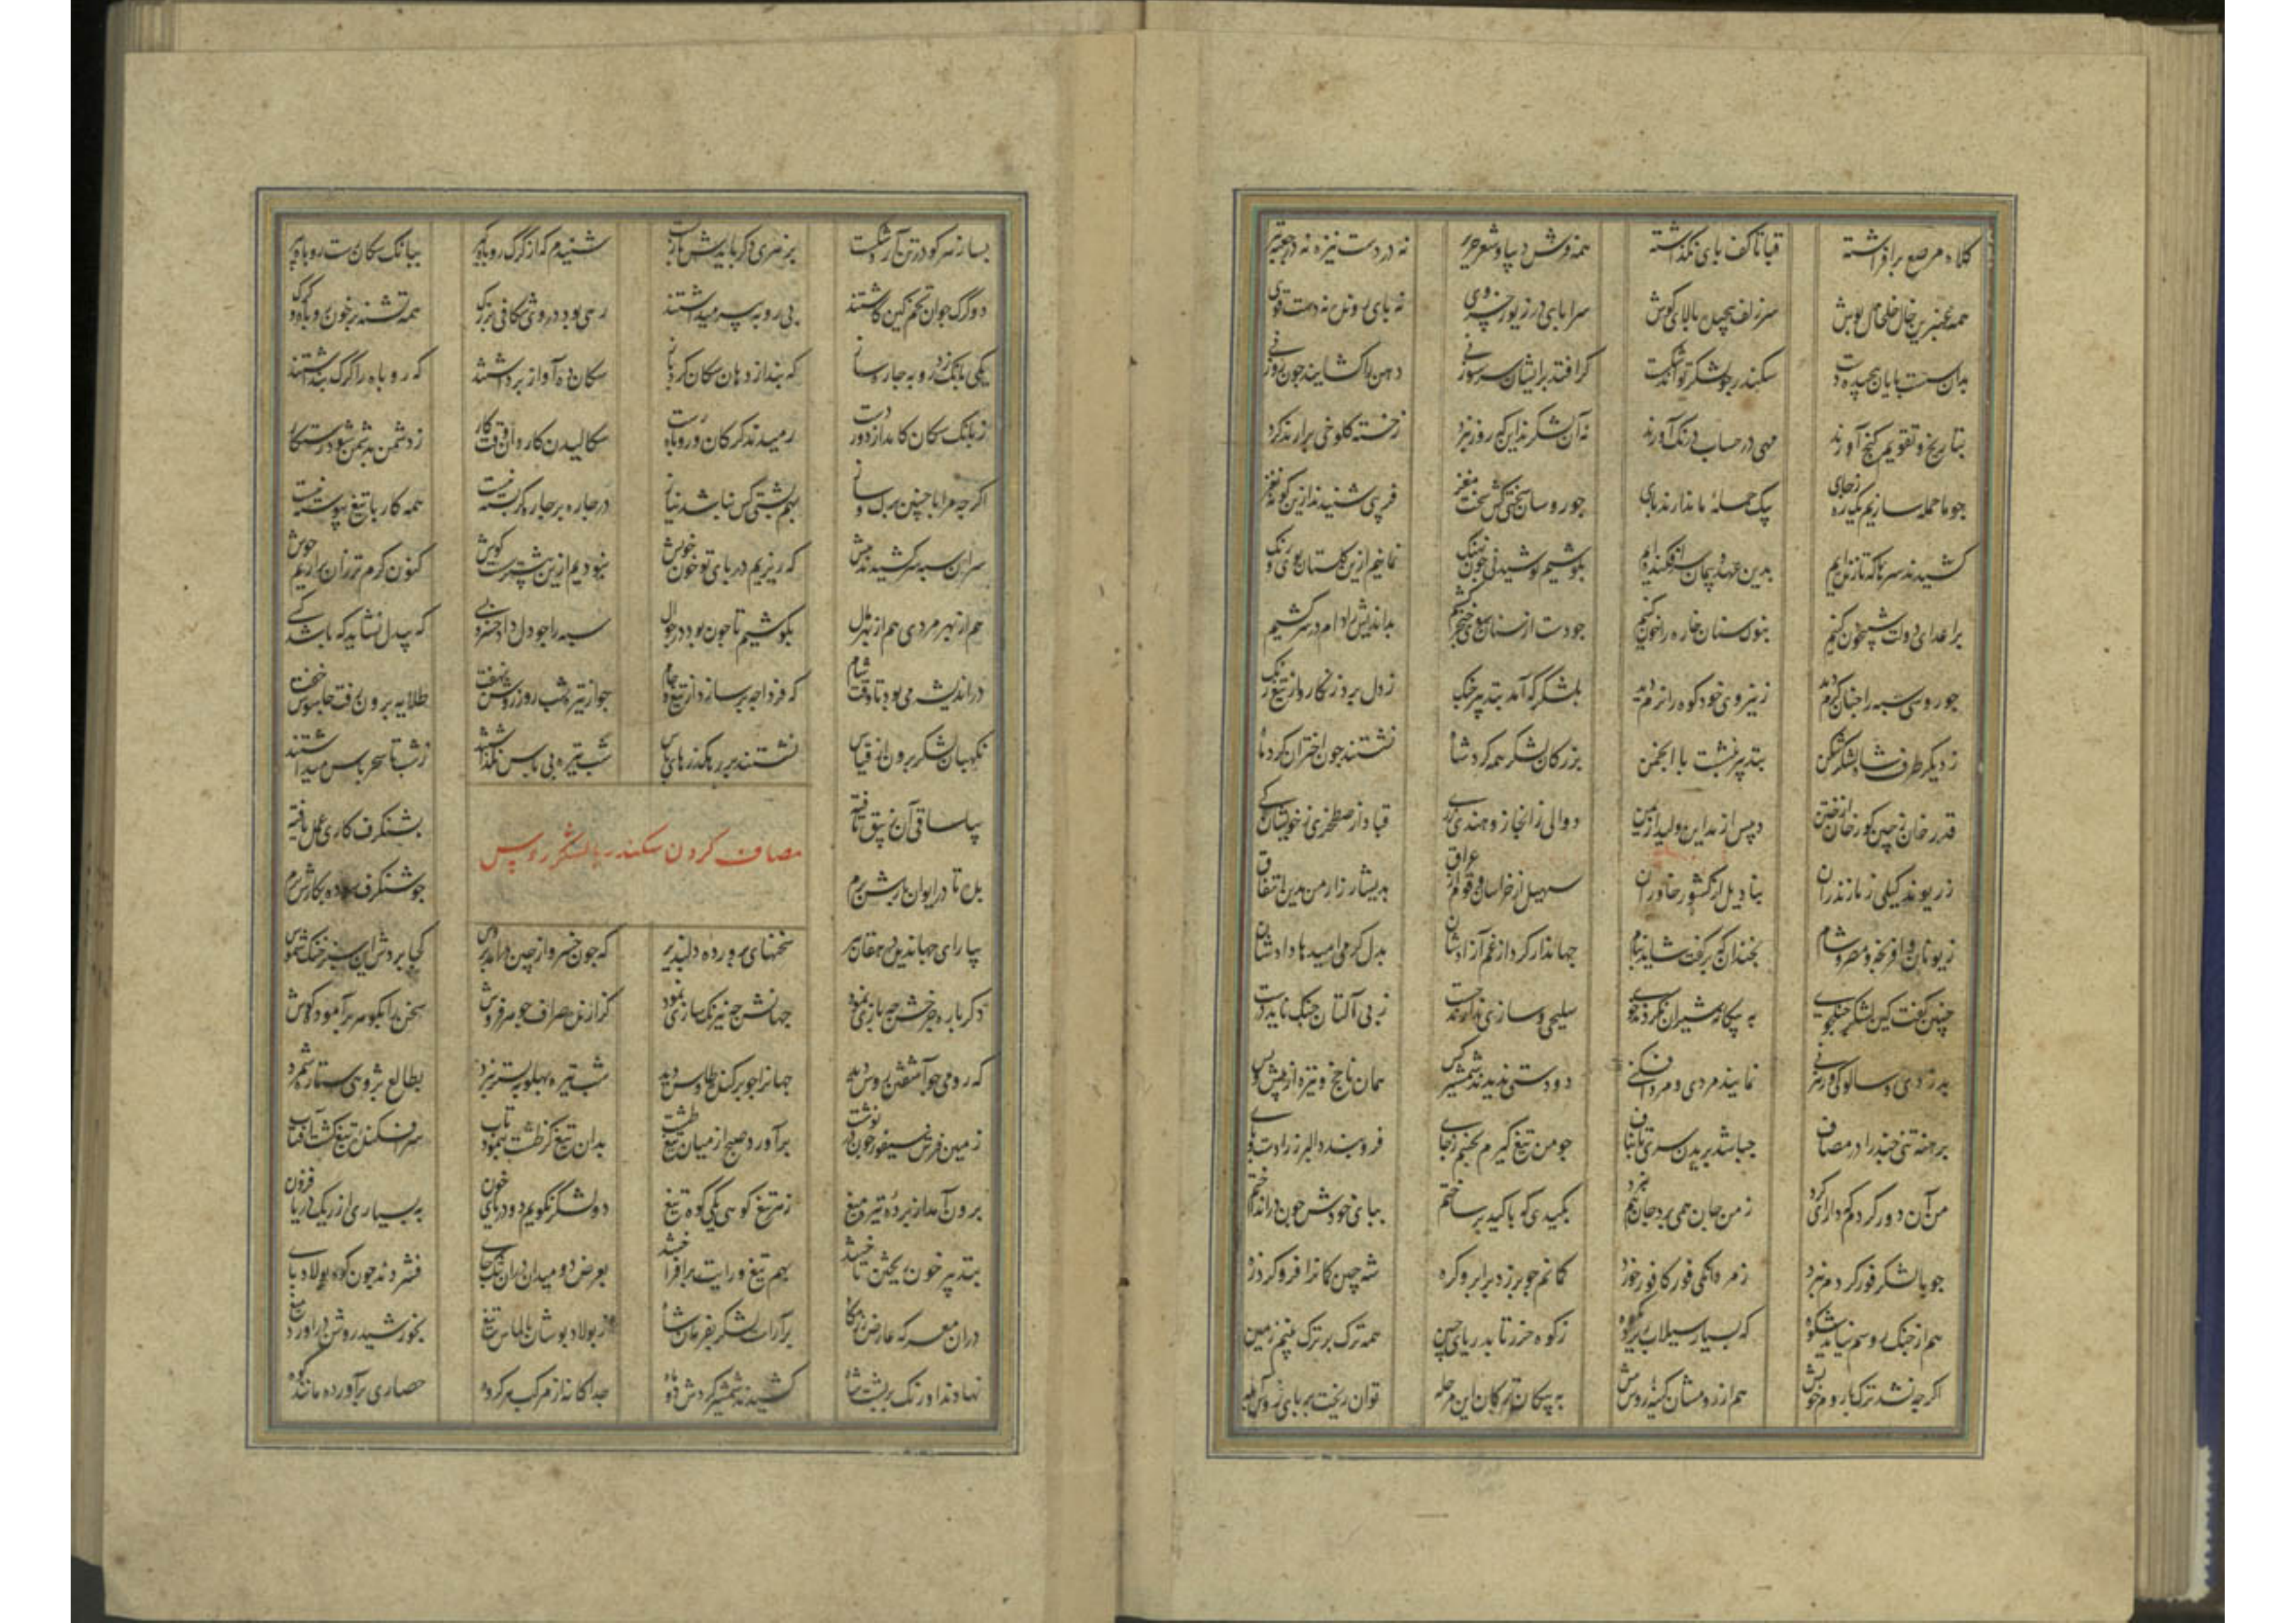 کلاه مرصع برافراشته قبا تا کف پای نگذاشته همه فرش دیبا و شعر حریر نه در دست نیزه نه در جعبه تیر
همه عنبرین خال خلخال پوش سر زلف پیچان بالای گوش سراپای در زیور خسروی نه پای رونده نه دست قوی
بدان سست پایان پیچیده دست سکندر چو لشکر تواند شکست گر افتد برایشان سر سوزنی دهن را گشایند چون روزنی
بتاریخ و تقویم جنگ آورند مهی در حساب درنگ آورند نه آن لشکرند این که روز نبرد ز خسته کلوخی برآرند گرد
چو ما حمله سازیم یکباره زجای یک حمله ما ندارند پای چو روسان سختی کش سخت مغز فریبی شنیدند ازین گونه نغز
کشیدند سرها که تا زنده‌ایم بدین عهد و پیمان سرافکنده‌ایم بکوشیم کوشیدنی چون نهنگ نمانیم ازین گلستان بوی و رنگ
بر اعدای دولت شبیخون کنیم بنوک سنان خاره را خون کنیم چو دست از سنان سوی خنجر کشیم بداندیش را دام در سر کشیم
چو روسی سپه را چنان گرم دید ز نیروی خود کوه را نرم دید بلشکرگه آمد بتدبیر جنگ ز دل برد زنگار و از تیغ زنگ
ز دیگر طرف شاه لشکر شکن بتدبیر بنشست با انجمن بزرگان لشکر همه گرد شاه نشستند چون اختران گرد ماه
قدر خان ز چین گور خان از ختن دبیس از مداین ولید از یمن دوالی ز ابخاز و هندی ز ری قباد از صطخری ز خویشان کی
زریوند گیلی ز مازندران نیا دیل از کشور خاوران سهیل از خراسان و قوم از عراق بریشاد ز ارمن بدین اتفاق
ز یونان و افرنجه و مصر و شام نچندان که برگفت شاید بنام جهاندار کرد از غم آزادشان بدل گرمی امیدها دادشان
چنین گفت کین لشکر جنگجوی به پیکار شیران نکردند خوی سلیحی و سازی ندارند چست ز بی آلتان جنگ ناید درست
به دزدی و سالوکی و رهزنی نمایند مردی و مرد افکنی دو دستی ندیدند شمشیر کس همان ناچخ و نیزه از پیش و پس
برهنه تنی چند را در مصاف چه باشد بریدن سر تا بناف چو من تیغ گیرم بجنبم ز جای فرو بندد البرز را دست و پای
من آن دور کردم که دارای گرد ز من جان همی برد و جان هم نبرد بکیدی که با کید برساختم بپای خودش خون در انداختم
چو با لشکر فور کردم نبرد ز مردانگی فور کافور خورد کمانم چو بر زد بر ابرو گره شه چین کمان را فرو کرد زه
هم از جنگ روسم نیاید شکوه که بسیار سیلاب ریزد ز کوه ز کوه خزر تا بدریای چین همه ترک بر ترک بینم زمین
اگر چه نشد ترک با روم خویش هم از رومشان کینه با روس بیش به پیکان ترکان این مرحله توان ریخت بر پای روس آبله
بسا زهر کو در تن آرد شکست بزهری دگر بایدش باز بست شنیدم که از گرگ روباه گیر ببانگ سگان رست روباه پیر
دو گرگ جوان تخم کین کاشتند پی روبه پیر میداشتند رهی بود در وی شکافی بزرگ همه تشنه بر خون روباه و گرگ
یکی بانگ زد روبه چاره ساز که بند از دهان سگان کرد باز سگان ده آواز برداشتند که روباه را گرگ پنداشتند
ز بانگ سگان کامد از دور دست رمیدند گرگان و روباه رست سگالیدن کاردان وقت کار ز دشمن بدشمن شود رستگار
اگر چه مرا با چنین برگ و ساز بهم پشتی کس نباشد نیاز در چاره بر چاره‌گر بسته نیست همه کار با تیغ پیوسته نیست
سران سپه سر کشیدند پیش که ریزیم در پای تو خون خویش نبودیم ازین پیشتر سست کوش کنون گرم تر زان برآریم جوش
هم از بهر مردی هم از بهر مال بکوشیم تا چون بود در جوال سپه را چو دل داد خسرو بسی که بیدل نشاید که باشد کسی
در اندیشه می‌بود تا وقت شام که فردا چه بر سازد از تیغ و جام چو از تیره شب روز روشن نهفت طلایه برون رفت جاسوس خفت
نگهبان لشکر برون از قیاس نشستند بر رهگذرهای پاس شب تیره بی پاس نگذاشتند ز شب تا سحر پاس میداشتند
بیا ساقی آن زیبق تافته بشنگرف کاری عمل یافته
مصاف کردن سکندر با لشکر روس
بده تا در ایوان بارش برم چو شنگرف سوده بکارش برم
بیا رای جهاندیده دهقان پیر سخنهای پرورده دلپذیر که چون خسرو از چین درآمد بروس کجا بردش این سبز خنگ شموس
دگر باره چرخش چه بازی نمود جهانش چه نیرنگ سازی نمود گزارنده صراف جوهر فروش سخن را بگوهر برآمود گوش
که رومی چو آشفتن روس دید جهان را چو پر کنده طاوس دید شب تیره پهلو ببستر نبرد بطالع پژوهی ستاره شمرد
زمین فرش سیفور چون در نوشت برآورد صبح از میان تیغ و طشت بدان تیغ کز طشت بنمود تاب سر افکنده تیغ گشت آفتاب
برون آمد از پرده تیره میغ ز هر تیغ کوهی یکی کوه تیغ دو لشکر نگویم دو دریای خون به بسیاری از ریگ دریا فزون
بتدبیر خون ریختن تاختند بهم تیغ و رایت برافراختند بعرض دو میدان دران تنگ جای فشردند چون کوه پولاد پای
دران معرکه عارض رزمگاه برآراست لشکر بفرمان شاه ز پولاد پوشان الماس تیغ بخورشید روشن درآورد میغ
نهادند اورنگ بر پشت شاه کشیدند شمشیر گردش دو ماه جداگانه از مرکب هر گروه حصاری برآورده مانند کوه